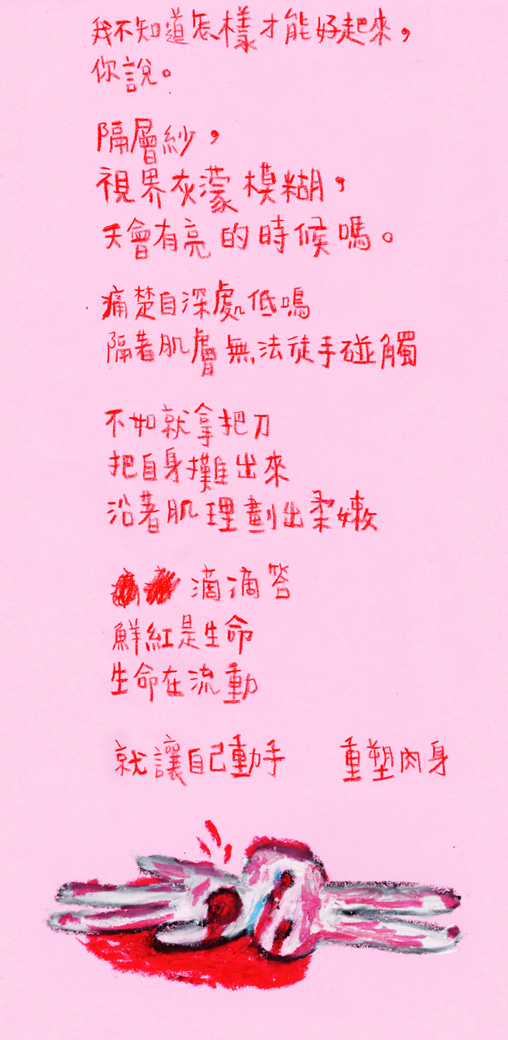 我不知道怎樣才能好起來，
你說。
隔層紗，
視界灰濛模糊，
天會有亮的時候嗎。
痛楚自深處低鳴
隔著肌膚無法徒手碰觸
不如就拿把刀
把自身攤出來
沿著肌理劃出柔嫩
滴滴答
鮮紅是生命
生命在流動
就讓自己動手　重塑肉身